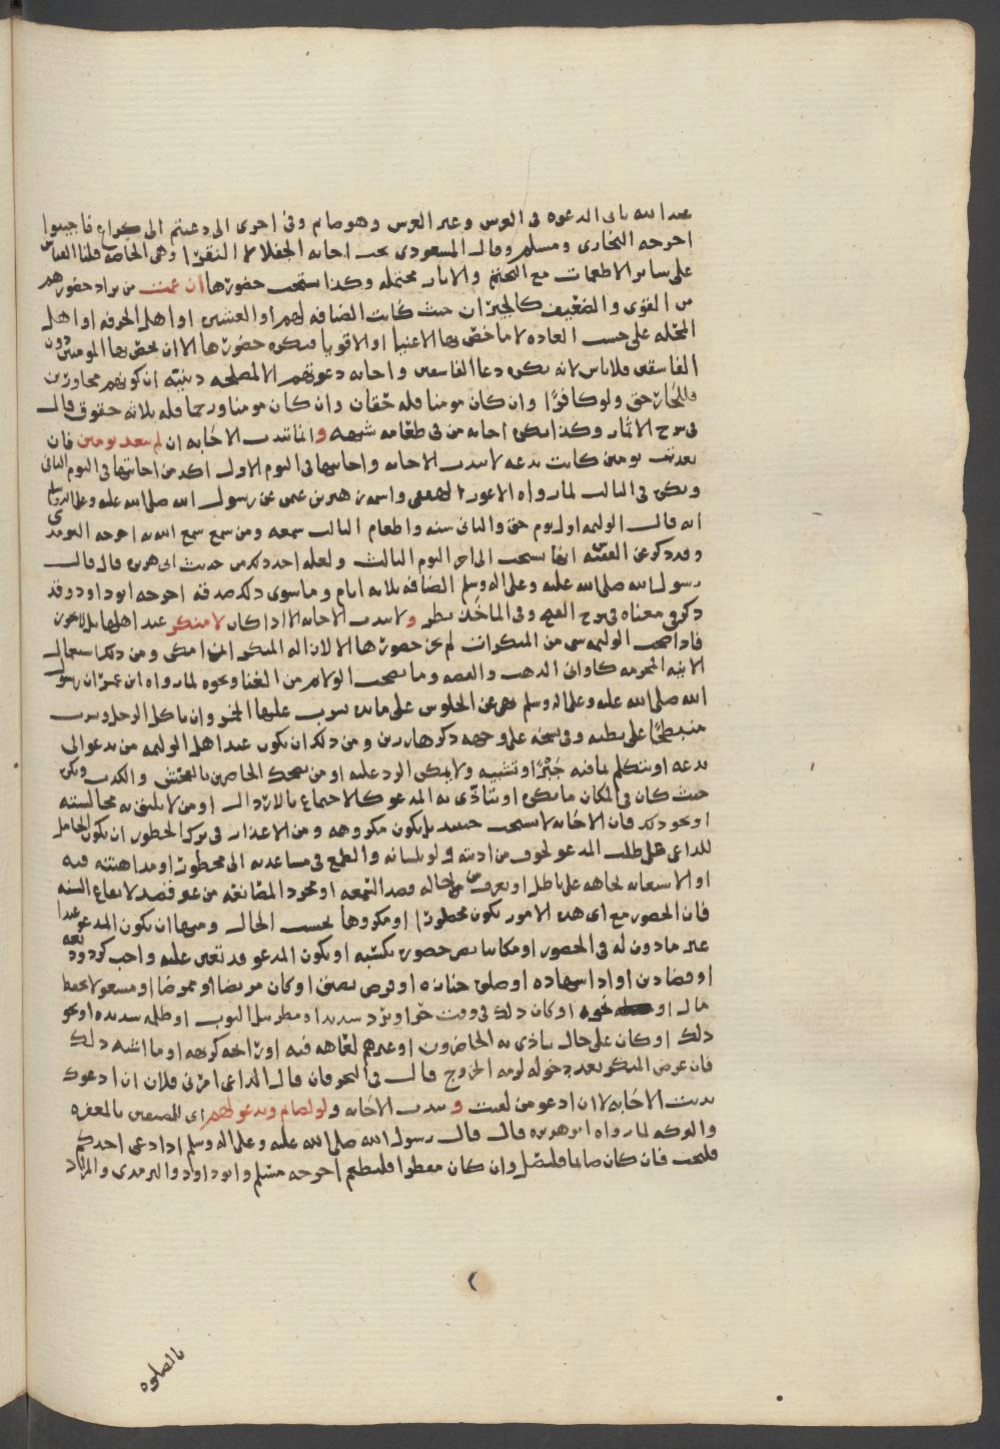 عبد الله ياتى الدعوه فى العرس وغير العرس وهو صايم وفى اخرى اذا دعيتم الى كراع فاجيبوا
اخرجه البخارى ومسلم وقال المسعودى تجب اجابه الجفلا لا النقرا وهى الخاصه قلنا القياس
على ساير الاطعمات مع التحتم والاثار محتمله وكذا يستحب حضورها ان عمت من يراد حضورهم
من القوى والضعيف كالجيران حيث كانت الضيافه لهم او العشيره او اهل الحرفه او اهل
المحله على حسب العاده لا ما خص بها الاغنيا او الاقويا فيكره حضورها الا ان يخص بها المومنين دون
الفاسقين فلا باس لانه يكره دعا الفاسقين واجابه دعوتهم الا لمصلحه دينيه او كونهم مجاورين
فللجار حق ولو كافرا وان كان مومنا فله حقان وان كان مومنا ورحما فله ثلاثه حقوق قال
فى شرح الاثمار وكذا يكره اجابه من فى طعامه شبهه وانما تندب الاجابه ان لم تعد يومين فان
تعدت يومين كانت بدعه لا تندب الاجابه واجابتها فى اليوم الاول اكد من اجابتها فى اليوم الثانى
وتكره فى الثالث لما رواه الاعور الثقفى واسمه زهير بن عثمن عن رسول الله صلى الله عليه وعلى اله وسلم
انه قال الوليمه اول يوم حق والثانى سنه واطعام الثالث سمعه ومن سمع سمع الله به اخرجه الترمذى
وقد ذكر عن الفقيه انها تستحب الى اخر اليوم الثالث ولعله اخذ ذلك من حديث ابى هريره قال قال
رسول الله صلى الله عليه وعلى اله وسلم الضيافه ثلاثه ايام وما سوى ذلك صدقه اخرجه ابو داود وقد
ذكر فى معناه فى شرح الفتح وفى الماخذ نظر ولا تندب الاجابه الا اذا كان لا منكر عند اهلها بل لا يجوز
فاذا صحب الوليمه شى من المنكرات لم يجز حضورها الا لازاله المنكر ان امكن ومن ذلك استعمال
الانيه المحرمه كاوانى الذهب والفضه وما يصحب الولايم من الغنا ونحوه لما رواه ابن عمر ان رسول
الله صلى الله عليه وعلى اله وسلم نهى عن الجلوس على مايده يشرب عليها الخمر وان ياكل الرجل ويشرب
منبطحا على بطنه وفى نسخه على وجهه ذكرها رزين ومن ذلك ان يكون عند اهل الوليمه من يدعو الى
بدعه او يتكلم بما فيه جبر او تشبيه ولا يمكن الرد عليه او من يضحك الحاضرين بالفحش والكذب ويكره
حيث كان فى المكان ما يكره او يتاذى به المدعو كالاجتماع بالارذال او من لا يليق به مجالسته
او نحو ذلك فان الاجابه لا تستحب حينيذ بل يكون مكروهه ومن الاعذار فى ترك الحضور ان يكون الحامل
للداعى على طلب المدعو لخوف من اذيته ولو بلسانه والطمع فى مساعدته الى محظور او مداهنته فيه
او الاستعانه بجاهه على باطل او يعرف من حاله قصد السمعه او مجرد المصانعه من غير قصد لاتباع السنه
فان الحضور مع اى هذه الامور يكون محظورا او مكروها بحسب الحال ومنها ان يكون المدعو عبدا
غير ماذون له فى الحضور او مكاتبا يضر حضوره بكسبه او يكون المدعو قد تعين عليه واجب كرد وديعه
او قضا دين او ادا شهاده او صلوه جنازه او فرض يضيق او كان مريضا او ممرضا او مشغولا بحفظ
مال او نحوه او كان ذلك فى وقت حر او برد شديد او مطر يبل الثوب او ظلمه شديده او نحو
ذلك او كان على حال يتاذى به الحاضرون او غيرهم لعاهه فيه او رايحه كريهه او ما اشبه ذلك
فان عرض المنكر بعد دخوله لزمه الخروج قال فى البحر فان قال الداعى امرنى فلان ان ادعوك
ندبت الاجابه لا ان ادعو من لقيت وتندب الاجابه ولو لصايم ويدعو لهم اى للمضيفين بالمغفره
والبركه لما رواه ابو هريره قال قال رسول الله صلى الله عليه وعلى اله وسلم اذا دعى احدكم
فليجب فان كان صايما فليصل وان كان مفطرا فليطعم اخرجه مسلم وابو داود والترمذى والمراد
بالصلوه